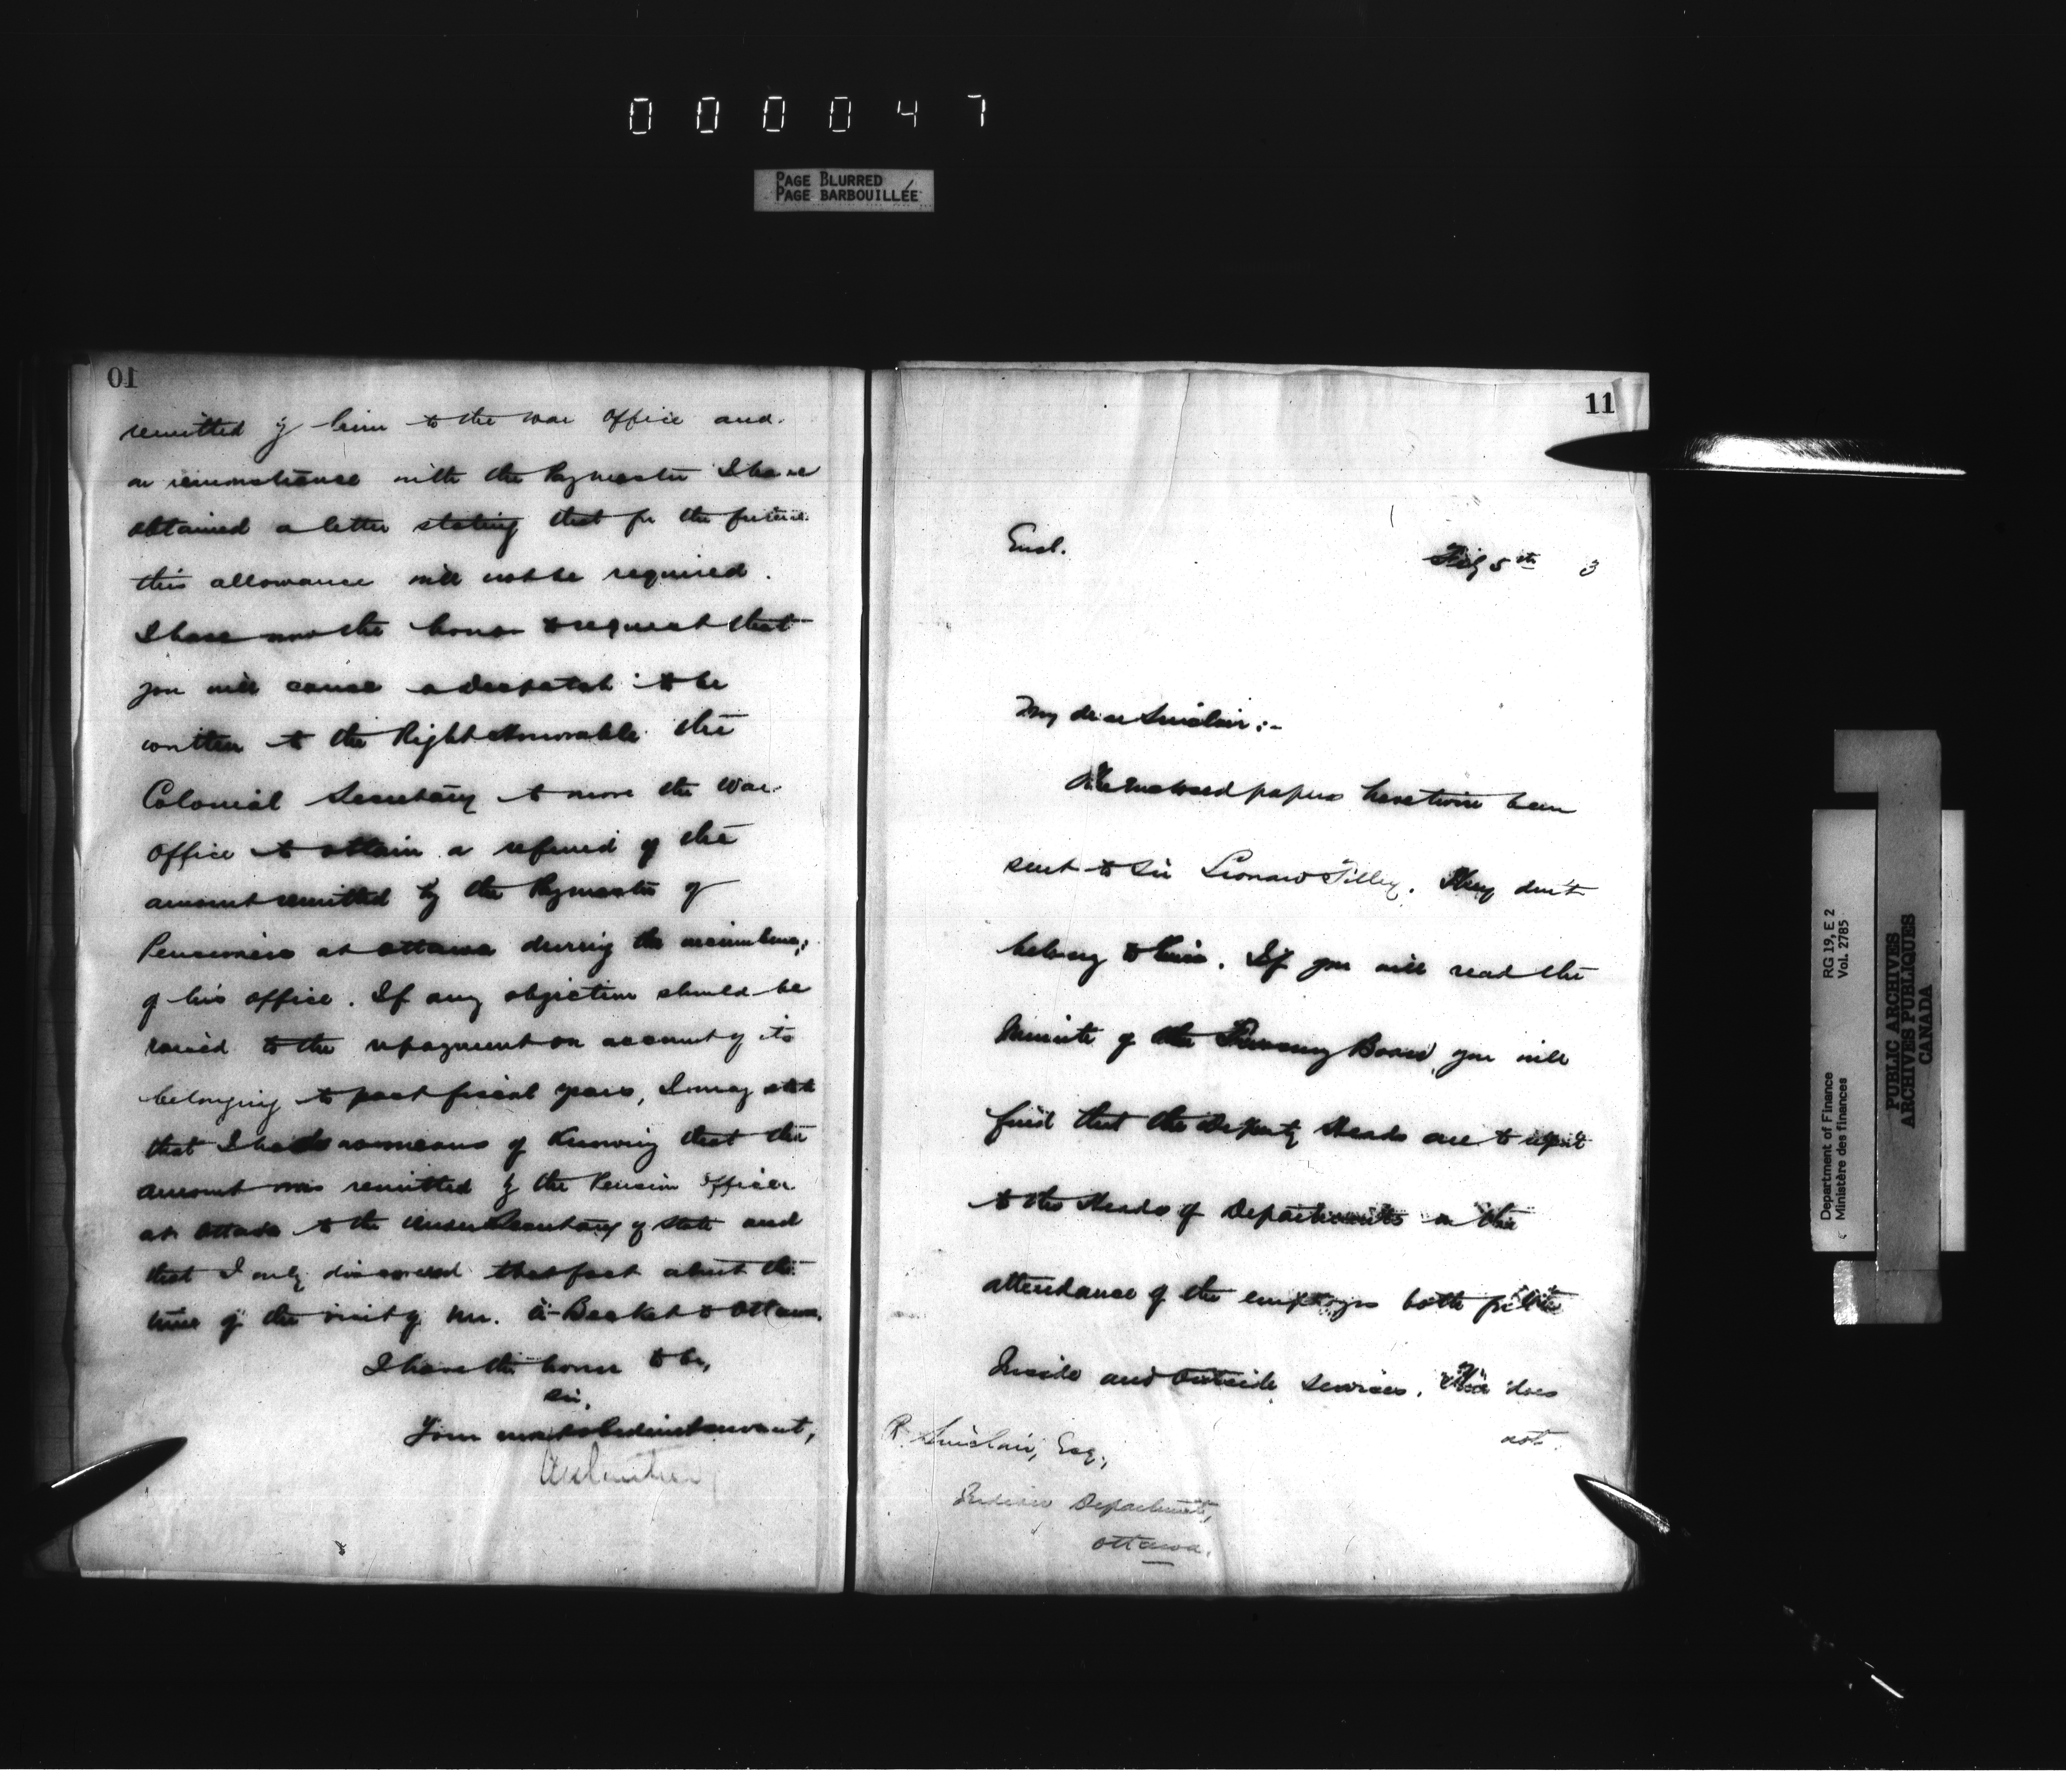 000047
PAGE BLURRED
PAGE BARBOUILLÉE
10
remitted by him to the War Office and
on remonstrance with the Paymaster I have
obtained a letter stating that for the future
this allowance will not be required.
I have now the honor to request that
you will cause a despatch to be
written to the Right Honorable the
Colonial Secretary to move the War
Office to obtain a refund of the
amount remitted by the Paymaster of
Pensioners at Ottawa during the incumbency
of his office. If any objection should be
raised to the repayment on account of its
belonging to past fiscal years, I may state
that I had no means of knowing that the
amount was remitted by the Pension Officer
at Ottawa to the Under Secretary of State and
that I only discovered that fact about the
time of the visit of Mr. A-Becket to Ottawa.
I have the honor to be,
Sir,
Your most obedient servant,
11
Encl.
Feby 5th 3
My dear Sinclair:-
The enclosed papers have twice been
sent to Sir Leonard Tilley. They don't
belong to him. If you will read the
Minute of the Treasury Board, you will
find that the Deputy Heads are to report
to the Heads of Departments on the
attendance of the employes both of the
Inside and Outside Services. This does
not
R. Sinclair, Esq.,
Indian Department,
Ottawa.
Department of Finance
Ministère des finances
RG 19, E 2
Vol. 2785
PUBLIC ARCHIVES
ARCHIVES PUBLIQUES
CANADA